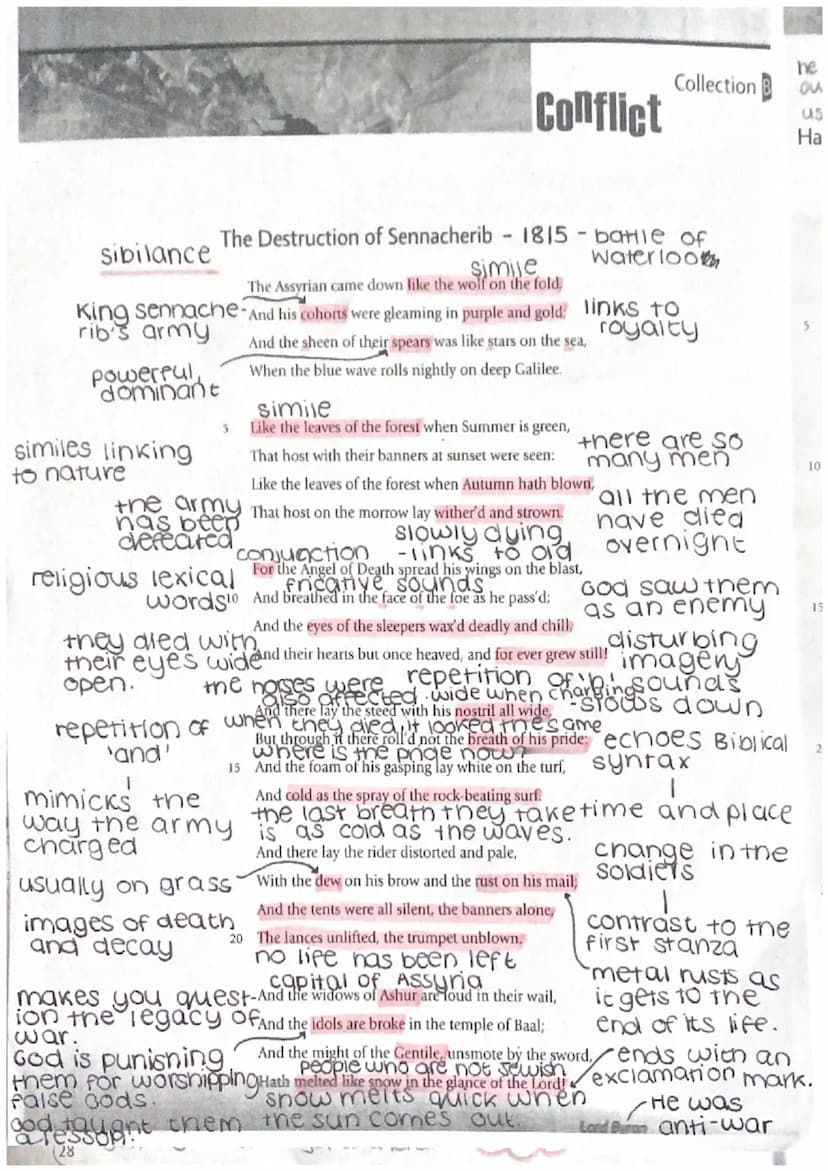 he
ou
us
Ha
Collection B
Conflict
The Destruction of Sennacherib - 1815 - battle of
Waterloo
sibilance
simile
The Assyrian came down like the wolf on the fold,
King Sennache-
rib's army
And his cohorts were gleaming in purple and gold;
links to
royalty
5
And the sheen of their spears was like stars on the sea,
powerful,
dominant
When the blue wave rolls nightly on deep Galilee.
simile
5 Like the leaves of the forest when Summer is green,
similes linking
to nature
there are so
many men
That host with their banners at sunset were seen:
10
Like the leaves of the forest when Autumn hath blown,
the army
has been
defeated
all the men
have died
overnight
That host on the morrow lay wither'd and strown.
slowly dying
- links to old
conjunction
For the Angel of Death spread his wings on the blast,
religious lexical
words
fricative sounds
God saw them
as an enemy
10 And breathed in the face of the foe as he pass'd;
15
And the eyes of the sleepers wax'd deadly and chill,
they died with
their eyes wide
open.
disturbing
imagery
And their hearts but once heaved, and for ever grew still!
repetition of 'n' sounds
- slows down
the horses were
also affected. wide when charging
And there lay the steed with his nostril all wide,
when they died, it looked the same
repetition of
'and'
But through it there roll'd not the breath of his pride;
echoes Biblical
syntax
2
where is the pride now?
15 And the foam of his gasping lay white on the turf,
mimicks the
way the army
charged
And cold as the spray of the rock-beating surf.
the last breath they take
is as cold as the waves.
time and place
And there lay the rider distorted and pale,
change in the
soldiers
usually on grass
With the dew on his brow and the rust on his mail;
images of death
and decay
And the tents were all silent, the banners alone,
contrast to the
first stanza
20 The lances unlifted, the trumpet unblown.
no life has been left
metal rusts as
it gets to the
end of its life.
capital of Assyria
makes you quest-
ion the legacy of
war.
And the widows of Ashur are loud in their wail,
And the idols are broke in the temple of Baal;
God is punishing
them for worshipping
false gods.
God taught them
a lesson.
And the might of the Gentile, unsmote by the sword,
people who are not Jewish
ends with an
exclamation mark.
Hath melted like snow in the glance of the Lord!
snow melts quick when
the sun comes out.
Lord Byron
He was
anti-war
28